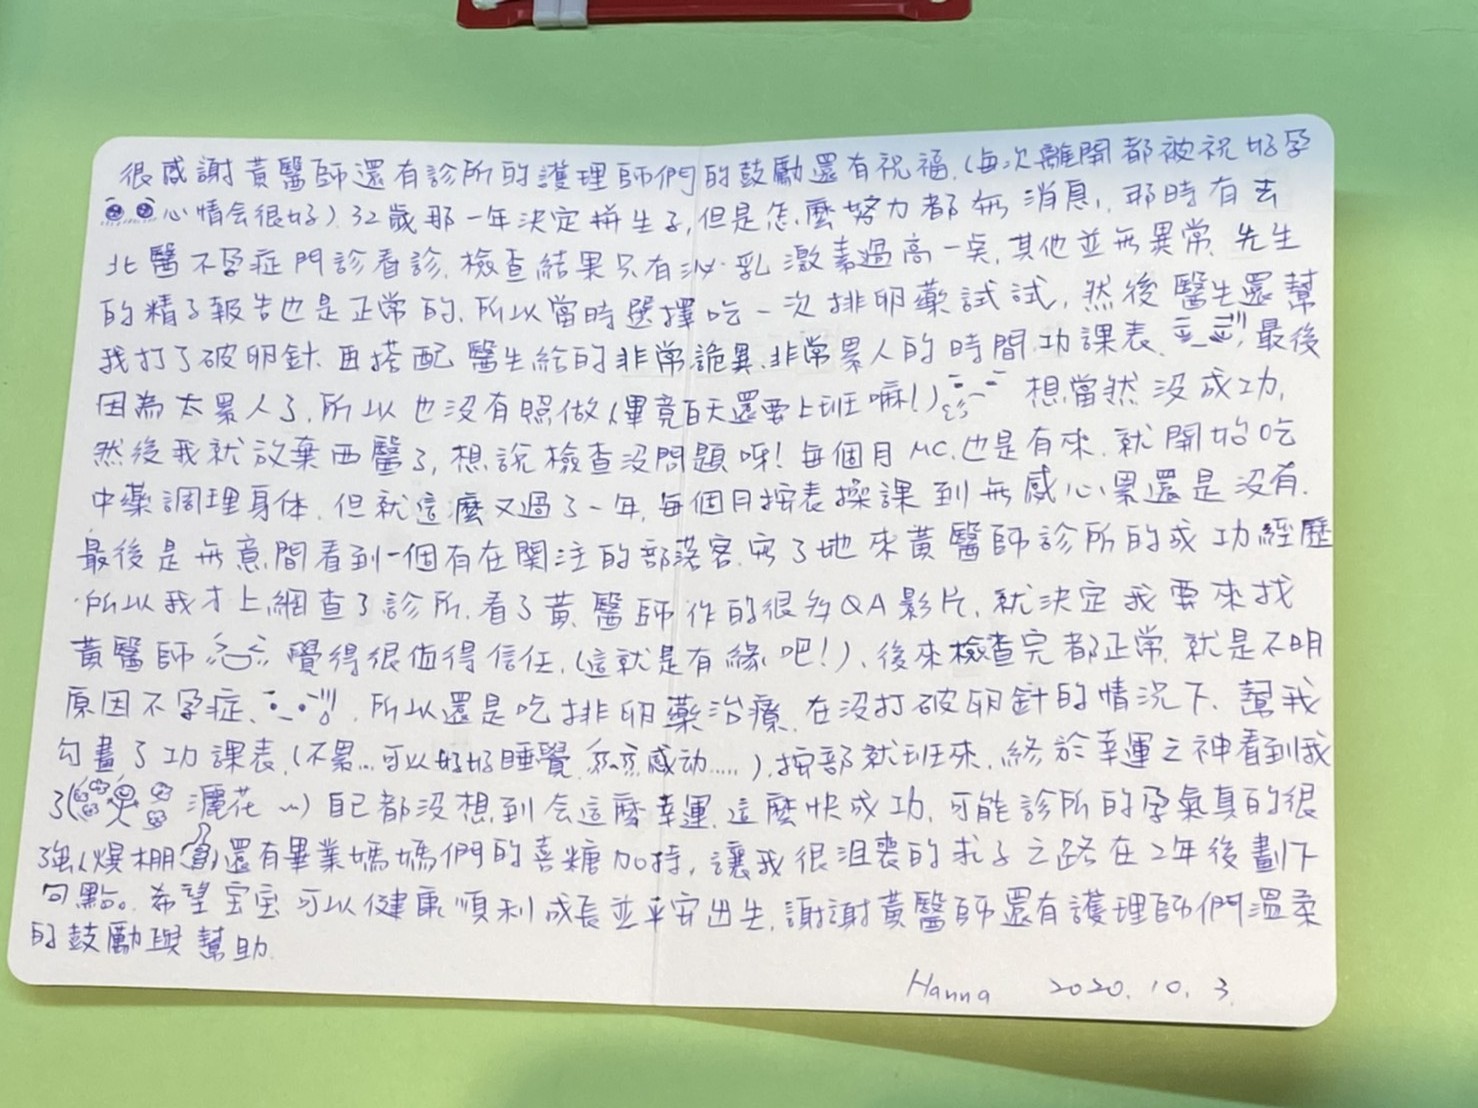 很感謝黃醫師還有診所的護理師們的鼓勵還有祝福.(每次離開都被祝好孕
心情会很好).32歲那一年決定拼生子,但是怎麼努力都無消息,那時有去
北醫不孕症門診看診.檢查結果只有泌乳激素過高一奌.其他並無異常.先生
的精子報告也是正常的.所以當時選擇吃一次排卵藥試試,然後醫生還幫
我打了破卵針.再搭配醫生給的非常詭異.非常累人的時間功課表.最後
因為太累人了.所以也沒有照做(畢竟白天還要上班嘛!)想當然沒成功.
然後我就放棄西醫了,想說檢查沒問題呀!每個月MC.也是有來.就開始吃
中藥調理身体.但就這麼又過了一年.每個月按表操課到無感心累還是沒有.
最後是無意間看到一個有在関注的部落客.寫了她來黃醫師診所的成功經歷
所以我才上網查了診所.看了黃醫師作的很多QA影片.就決定我要來找
黃醫師 覺得很值得信任.(這就是有緣吧!).後來檢查完都正常.就是不明
原因不孕症.所以還是吃排卵藥治療.在沒打破卵針的情況下.幫我
勾畫了功課表.(不累...可以好好睡覺.感动.....).按部就班來.終於幸運之神看到我
了(灑花~)自己都沒想到会這麼幸運.這麼快成功.可能診所的孕氣真的很
強(爆棚)還有畢業媽媽們的喜糖加持,讓我很沮喪的求子之路在2年後劃下
句點。希望宝宝可以健康順利成長並平安出生.謝謝黃醫師還有護理師們溫柔
的鼓勵與幫助.
Hanna 2020.10.3.